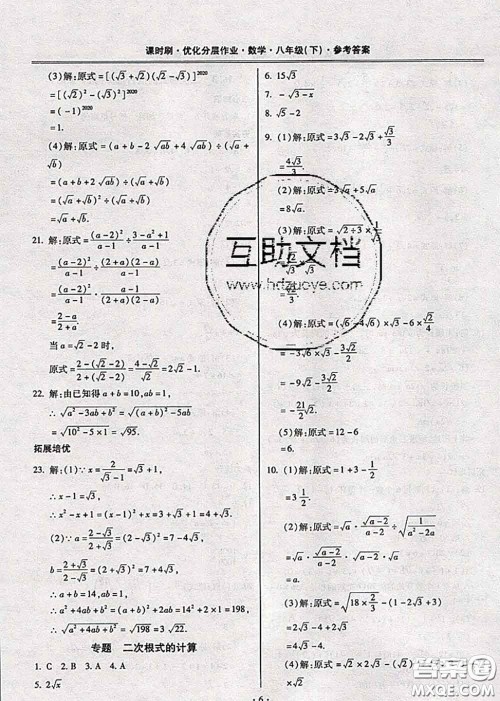 课时刷·优化分层作业·数学·八年级(下)·参考答案
(3)解:原式=[(√3+√2)(√2-√3)]²⁰²⁰
=[(√2)²-(√3)²]²⁰²⁰
=(-1)²⁰²⁰
=1.
(4)解:原式=(a+b-2√ab+4√ab)÷(√a+√b)
=(a+b+2√ab)÷(√a+√b)
=(√a+√b)²÷(√a+√b)
=√a+√b.
21. 解:原式=(a-2)²/(a-1)÷(3-a²+1)/(a-1)
=(a-2)²/(a-1)÷(2+a)(2-a)/(a-1)
=(a-2)²/(a-1)·(a-1)/((2+a)(2-a))
=-(a-2)/(2+a).
当a=√2-2时,
原式=(2-(√2-2))/(2+(√2-2))=(4-√2)/√2=2√2-1.
22. 解:由已知得a+b=10,ab=1,
∴√(a²-3ab+b²)=√((a+b)²-5ab)
=√(10²-5×1)=√95.
拓展培优
23. 解:(1)∵x=2/(√3-1)=√3+1,
∴x-1=√3,
∴x²-x=x(x-1)=(√3+1)×√3=3+√3.
(2)∵a=(2-√3)/(2+√3)=(2-√3)²=7-4√3,
b=(2+√3)/(2-√3)=(2+√3)²=7+4√3,
∴a+b=14,ab=1,
∴a²+4ab+b²=(a+b)²+2ab=14²+2×1=198,
∴√(a²+4ab+b²)=√198=3√22.
专题 二次根式的计算
1. C 2. B 3. A 4. A
5. 2√x
6. 15√3
7. -√(3-x)
8. √5-2
9. (1)解:原式=3√3-2√3+√3/3
=4√3/3.
(2)解:原式=3√a+5√a
=8√a.
(4)解:原式=(√6-4√6)×√3-3√2/2
=-3√6×√3-3√2/2
=-9√2-3√2/2
=-21/2√2.
(5)解:原式=12-6
=6.
10. (1)解:原式=1+3-1/2
=3 1/2.
(2)解:原式=√a·√(a-2)/√(a-2)÷√(1/(a²-2a))
=a.
(3)解:原式=√(18×2/3)-(1-2√3+3)
互助文档
www.hdzuoye.com
·6·
答案圈
MXQE.COM